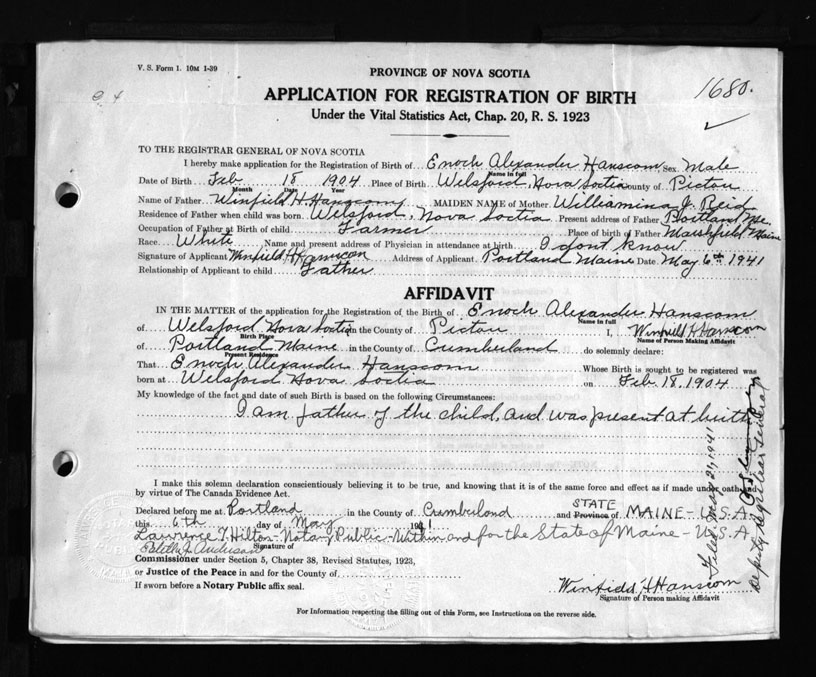 V. S. Form 1. 10M 1-39
PROVINCE OF NOVA SCOTIA
1680.
APPLICATION FOR REGISTRATION OF BIRTH
Under the Vital Statistics Act, Chap. 20, R. S. 1923
TO THE REGISTRAR GENERAL OF NOVA SCOTIA
I hereby make application for the Registration of Birth of Enoch Alexander Hanscom Sex Male
Name in full
Date of Birth Feb 18 1904 Place of Birth Welsford, Nova Soctia County of Pictou
Month Date Year
Name of Father Winfield H Hanscom MAIDEN NAME of Mother Williamina J. Reid
Residence of Father when child was born Welsford, Nova Soctia Present address of Father Portland Me
Occupation of Father at Birth of child Farmer Place of birth of Father Marshfield Maine
Race White Name and present address of Physician in attendance at birth I dont know
Signature of Applicant Winfield H Hanscom Address of Applicant Portland Maine Date May 6th 1941
Relationship of Applicant to child Father
AFFIDAVIT
IN THE MATTER of the application for the Registration of the Birth of Enoch Alexander Hanscom
Name in full
of Welsford Nova Soctia in the County of Pictou I, Winfield H Hanscom
Birth Place Name of Person Making Affidavit
of Portland Maine in the County of Cumberland do solemnly declare:
Present Residence
That Enoch Alexander Hanscom Whose Birth is sought to be registered was
born at Welsford Nova Soctia on Feb. 18, 1904
My knowledge of the fact and date of such Birth is based on the following Circumstances:
I am father of the child, and was present at birth
I make this solemn declaration conscientiously believing it to be true, and knowing that it is of the same force and effect as if made under oath and
by virtue of The Canada Evidence Act.
Declared before me at Portland in the County of Cumberland STATE and Province of MAINE - U.S.A.
this 6th day of May 1941
Lawrence T. Hilton - Notary Public - Within and for the State of Maine - U.S.A
Signature of
Commissioner under Section 5, Chapter 38, Revised Statutes, 1923,
or Justice of the Peace in and for the County of
If sworn before a Notary Public affix seal.
Winfield H Hanscom
Signature of Person making Affidavit
For Information respecting the filling out of this Form, see Instructions on the reverse side.
Filed May 21, 1941
Deputy Registrar General